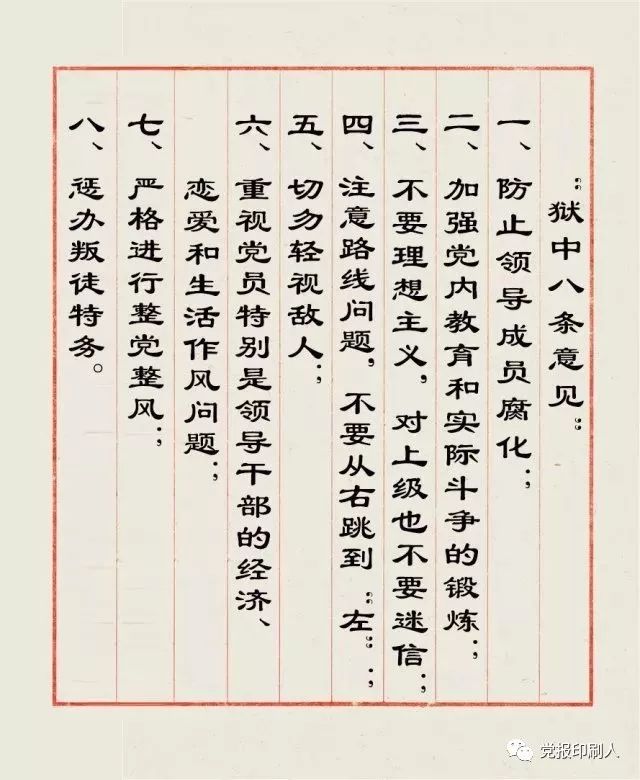 “狱中八条意见”
一、防止领导成员腐化；
二、加强党内教育和实际斗争的锻炼；
三、不要理想主义，对上级也不要迷信；
四、注意路线问题，不要从右跳到“左”；
五、切勿轻视敌人；
六、重视党员特别是领导干部的经济、
恋爱和生活作风问题；
七、严格进行整党整风；
八、惩办叛徒特务。
党报印刷人